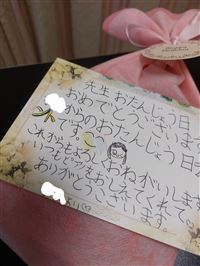 先生 おたんじょう日
おめでとうございます
つのおたんじょう日
です。
これからもよろしくおねがいします
いつもピアノをおしえてくれて
ありがとうございます。
より